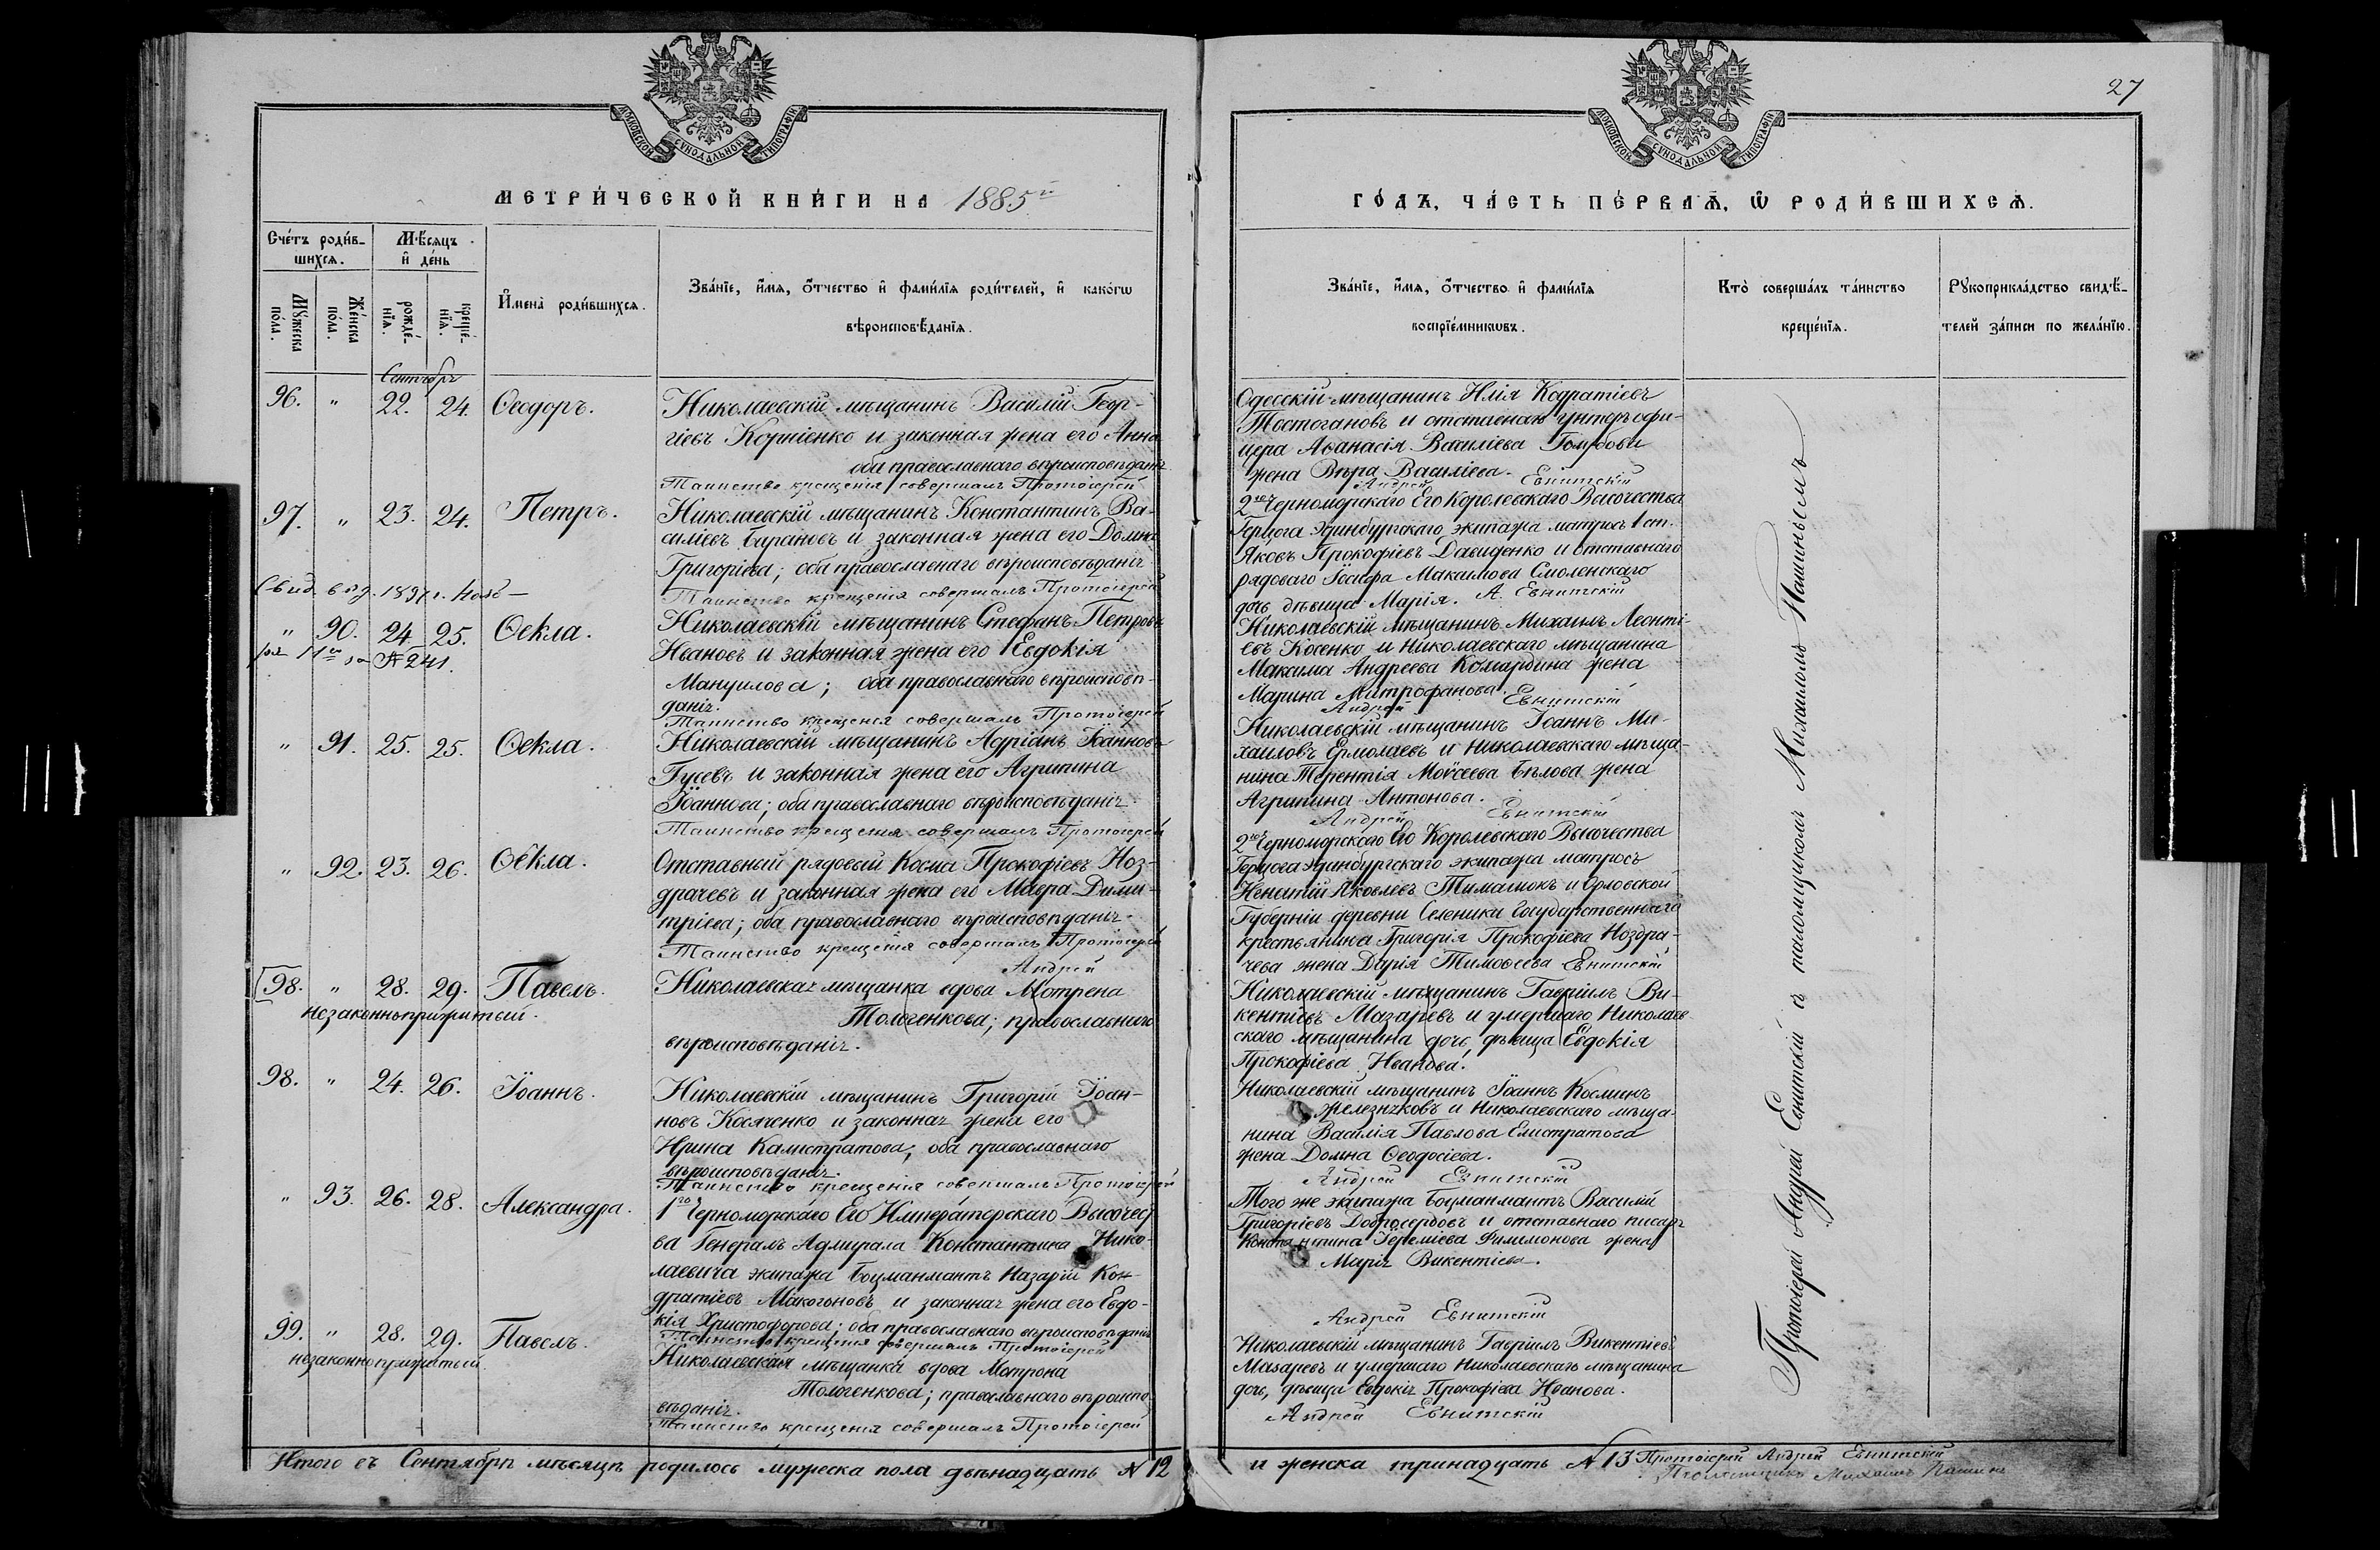 27
МОСКОВСКОЙ СУНОДАЛЬНОЙ ТИПОГРАФІИ
МОСКОВСКОЙ СУНОДАЛЬНОЙ ТИПОГРАФІИ
МЕТРИ́ЧЕСКОЙ КНИ́ГИ НА 1885й
ГО́ДЪ, ЧА́СТЬ ПЕ́РВАѦ, Ѡ РОДИ́ВШИХСѦ.
Сче́тъ роди́в-
шихсѧ.
Мѣ́сѧцъ
и҆ де́нь
Мꙋ́жеска
по́ла.
Же́нска
по́ла.
рожде́-
нїѧ.
креще́-
нїѧ.
И҆мена̀ роди́вшихсѧ.
Зва́нїе, и҆́мѧ, ѻ҆́тчество и҆ фами́лїѧ роди́телей, и҆ како́гѡ
вѣроисповѣ́данїѧ.
Зва́нїе, и҆́мѧ, ѻ҆́тчество и҆ фами́лїѧ
воспрїе́мникѡвъ.
Кто̀ соверша́лъ та́инство
креще́нїѧ.
Рꙋкоприкла́дство свидѣ́-
телей за́писи по жела́нїю.
Сентябрь
96. " 22. 24. Ѳеодоръ.
Николаевскій мѣщанинъ Василій Геор-
гіевъ Корніенко и законная жена его Анна
оба православнаго вѣроисповѣданія
Таинство крещенія совершалъ Протоіерей
Одесскій мѣщанинъ Илія Кодратіевъ
Тостогановъ и отставнаго унтеръ офи-
цера Аѳанасія Василіева
жена Вѣра Василіева.
Андрей Евнитскій
97. " 23. 24. Петръ.
Николаевскій мѣщанинъ Константинъ Ва-
силіевъ Барановъ и законная жена его Домна
Григоріева; оба православнаго вѣроисповѣданія
Таинство крещенія совершалъ Протоіерей
2го Черноморскаго Его Королевскаго Высочества
Герцога Эдинбургскаго экипажа матросъ 1 ст.
Яковъ Прокофіевъ Давиденко и отставнаго
рядоваго Іосифа Максимова Смоленскаго
дочь дѣвица Марія. А. Евнитскій
Свид. выд. 1897 г.
" 90. 24. 25. Ѳекла.
за № 241.
Николаевскій мѣщанинъ Стефанъ Петровъ
Ивановъ и законная жена его Евдокія
Мануилова; оба православнаго вѣроисповѣ-
данія.
Таинство крещенія совершалъ Протоіерей
Николаевскій мѣщанинъ Михаилъ Леонті-
евъ Косенко и Николаевскаго мѣщанина
Максима Андреева Комардина жена
Марина Митрофанова.
Андрей Евнитскій
" 91. 25. 25. Ѳекла.
Николаевскій мѣщанинъ Адріанъ Іоанновъ
Гусевъ и законная жена его Агрипина
Іоаннова; оба православнаго вѣроисповѣданія
Таинство крещенія совершалъ Протоіерей
Николаевскій мѣщанинъ Іоаннъ Ми-
хаиловъ Ермолаевъ и Николаевскаго мѣща-
нина Терентія Моѵсеева Бѣлова жена
Агрипина Антонова.
Андрей Евнитскій
" 92. 23. 26. Ѳекла.
Отставный рядовый Косма Прокофіевъ Ноз-
драчевъ и законная жена его Мавра Дими-
тріева; оба православнаго вѣроисповѣданія.
Таинство крещенія совершалъ Протоіерей
Андрей
2го Черноморскаго Его Королевскаго Высочества
Герцога Эдинбургскаго экипажа матросъ
Яковлевъ Тималюкъ и Орловской
Губерніи деревни Селеники Государственнаго
крестьянина Григорія Прокофіева Ноздра-
чева жена Дарія Тимоѳеева Евнитскій
98. " 28. 29. Павелъ.
незаконноприжитый.
Николаевская мѣщанка вдова Мотрена
Тологенкова; православнаго
вѣроисповѣданія.
Николаевскій мѣщанинъ Гавріилъ Ви-
кентіевъ Мазаревъ и умершаго Николаев-
скаго мѣщанина дочь, дѣвица Евдокія
Прокофіева Иванова.
98. " 24. 26. Іоаннъ.
Николаевскій мѣщанинъ Григорій Іоан-
новъ Косяченко и законная жена его
Ирина Калистратова; оба православнаго
вѣроисповѣданія.
Таинство крещенія совершалъ Протоіерей
Николаевскій мѣщанинъ Іоаннъ Косминъ
Железняковъ и Николаевскаго мѣща-
нина Василія Павлова Елистратова
жена Домна Ѳеодосіева.
Андрей Евнитскій
" 93. 26. 28. Александра.
1го Черноморскаго Его Императорскаго Высочест-
ва Генералъ Адмирала Константина Нико-
лаевича экипажа Боцманматъ Назарій Кон-
дратіевъ Макогоновъ и законная жена его Евдо-
кія Христофорова; оба православнаго вѣроисповѣданія
Таинство крещенія совершалъ Протоіерей
Того же экипажа Боцманматъ Василій
Григоріевъ Добросердовъ и отставнаго писаря
Константина Іереміева Филимонова жена
Марія Викентіева.
Андрей Евнитскій
99. " 28. 29. Павелъ.
незаконноприжитый.
Николаевская мѣщанка вдова Мотрона
Тологенкова; православнаго вѣроиспо-
вѣданія.
Таинство крещенія совершалъ Протоіерей
Николаевскій мѣщанинъ Гавріилъ Викентіевъ
Мазаревъ и умершаго Николаевскаго мѣщанина
дочь, дѣвица Евдокія Прокофіева Иванова.
Андрей Евнитскій
Протоіерей Андрей Евнитскій съ паломщикомъ Михаиломъ Пашинымъ
Итого въ Сентябрѣ мѣсяцѣ родилось мужеска пола двѣнадцать № 12
и женска тринадцать № 13 Протоіерей Андрей Евнитскій
Михаилъ Пашинъ